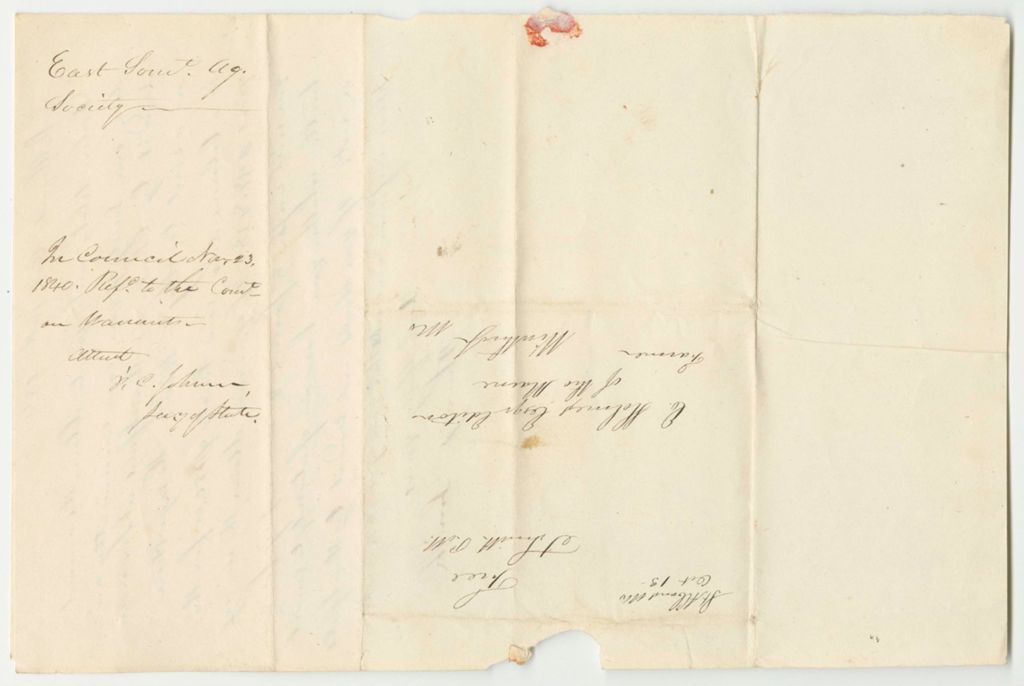 East Somt. Ag.
Society
In Council Nov 23.
1840. Refd. to the Comt.
on Warrants.
Attest
P. C. Johnson,
Secy of State.
St Albans Me
Oct 13
Free
Smith P.M.
E. Holmes Esqr Editor
of the Maine
Farmer
Winthrop Me